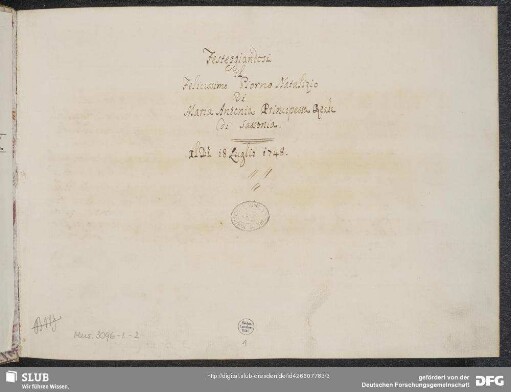 Festeggiandosi
il
Felicissimo Giorno Natalizio
Di
Maria Antonia Principessa Reale
Di Sassonia.
Il Dì 18 Luglio 1748.
Mus. 3046-F-2
1
SLUB
Wir führen Wissen.
http://digital.slub-dresden.de/id426507783/3
gefördert von der
Deutschen Forschungsgemeinschaft
DFG